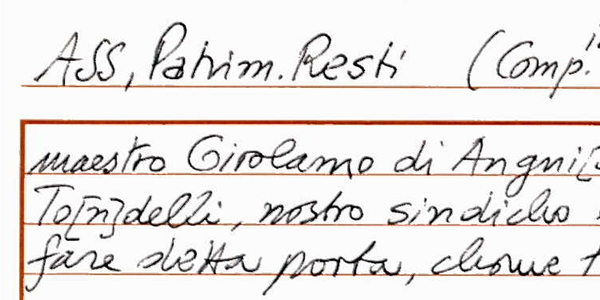 ASS, Patrim. Resti (Comp.
maestro Girolamo di Angni
To[n]delli, nostro sindicho
fare detta porta, chome